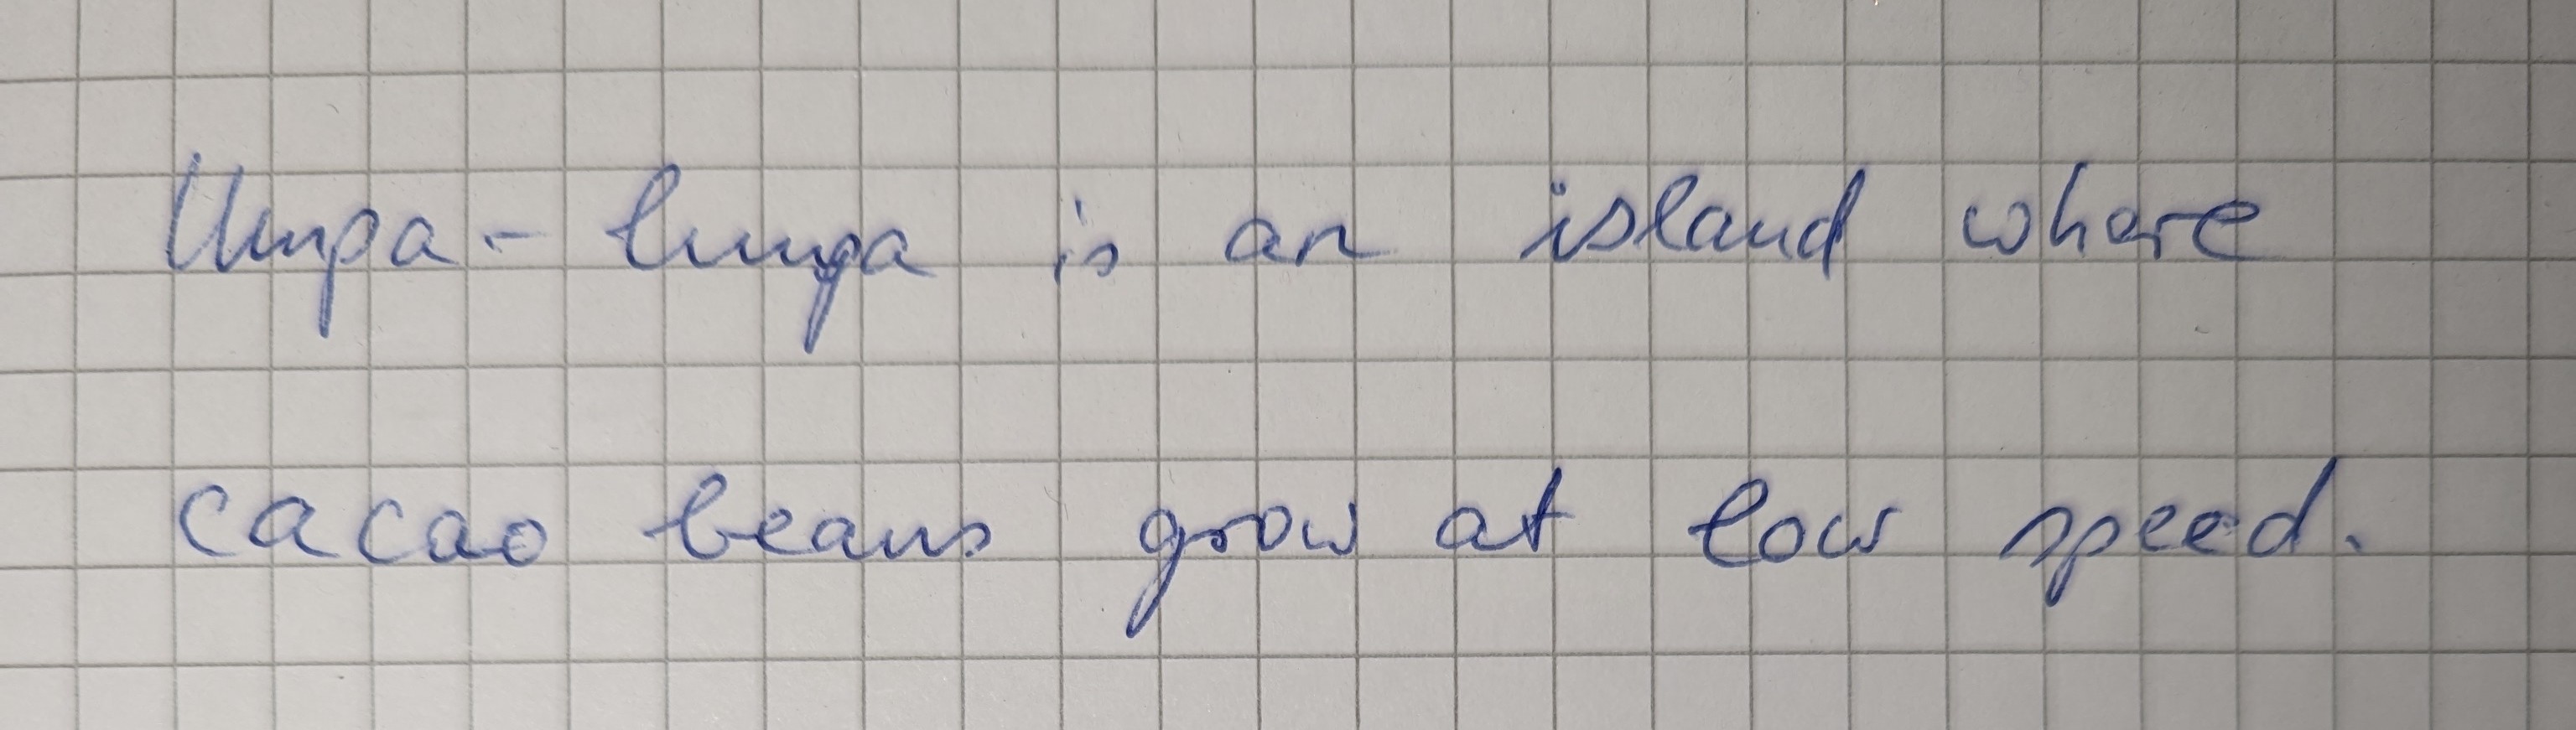 Umpa-lumpa is an island where
cacao beans grow at low speed.